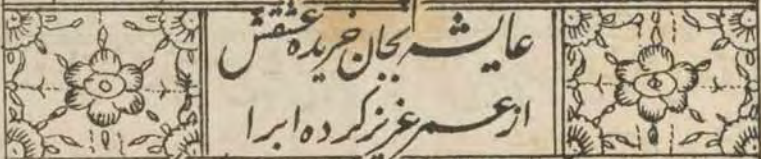 عایشه بجان خریده عشقش
از عمر عزیز کرده ابرا